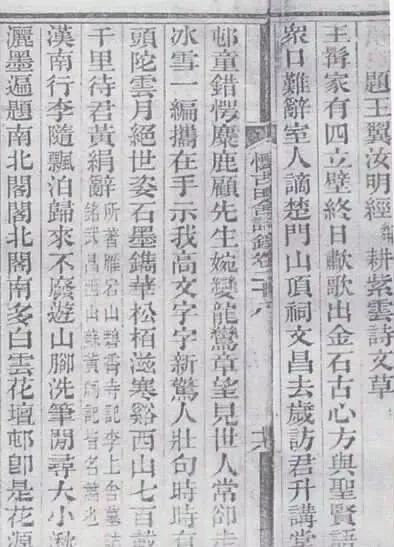 題王翼汝明經耕紫雲詩文草
王髯家有四立壁終日歗歌出金石古心方與聖賢語
衆口難辭室人謫楚門山頂祠文昌去歲訪君升講堂
懷古田舍詩錄卷二十八
邨童錯愕麋鹿顧先生婉孌龍鸞章望見世人常卻走
冰雪一編攜在手示我高文字字新驚人壯句時時有
頭陀雲月絕世姿石墨鐫華松栢滋寒谿西山七百載
千里待君黃絹辭
所著雁宕山壽香寺記李上舍墓誌
銘武昌西山蘇黃祠記皆名著也
漢南行李隨飄泊歸來不廢遊山腳洗筆閒尋大小湫
灑墨遍題南北閣閣北閣南多白雲花壇邨卽是花源